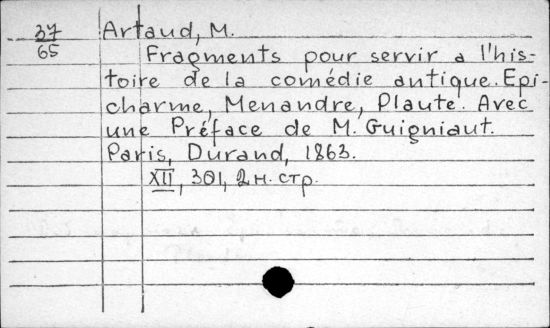 37
65
Artaud, M.
Fragments pour servir a l'his-
toire de la comédie antique. Epi-
charme, Menandre, Plaute. Avec
une Préface de M. Guigniaut.
Paris, Durand, 1863.
XII, 301, 2 н. стр.